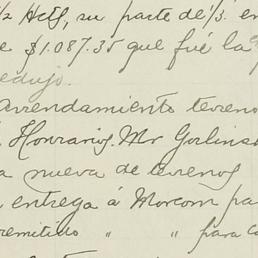 ½ Hcts, su parte de 1/3. en
e $1.087.35 que fué la
redujo.
Arrendamiento terreno
Honrarios Mr Gorlinso
a nueva de terenos
entrega á Morcom pa
remitidos " " para co